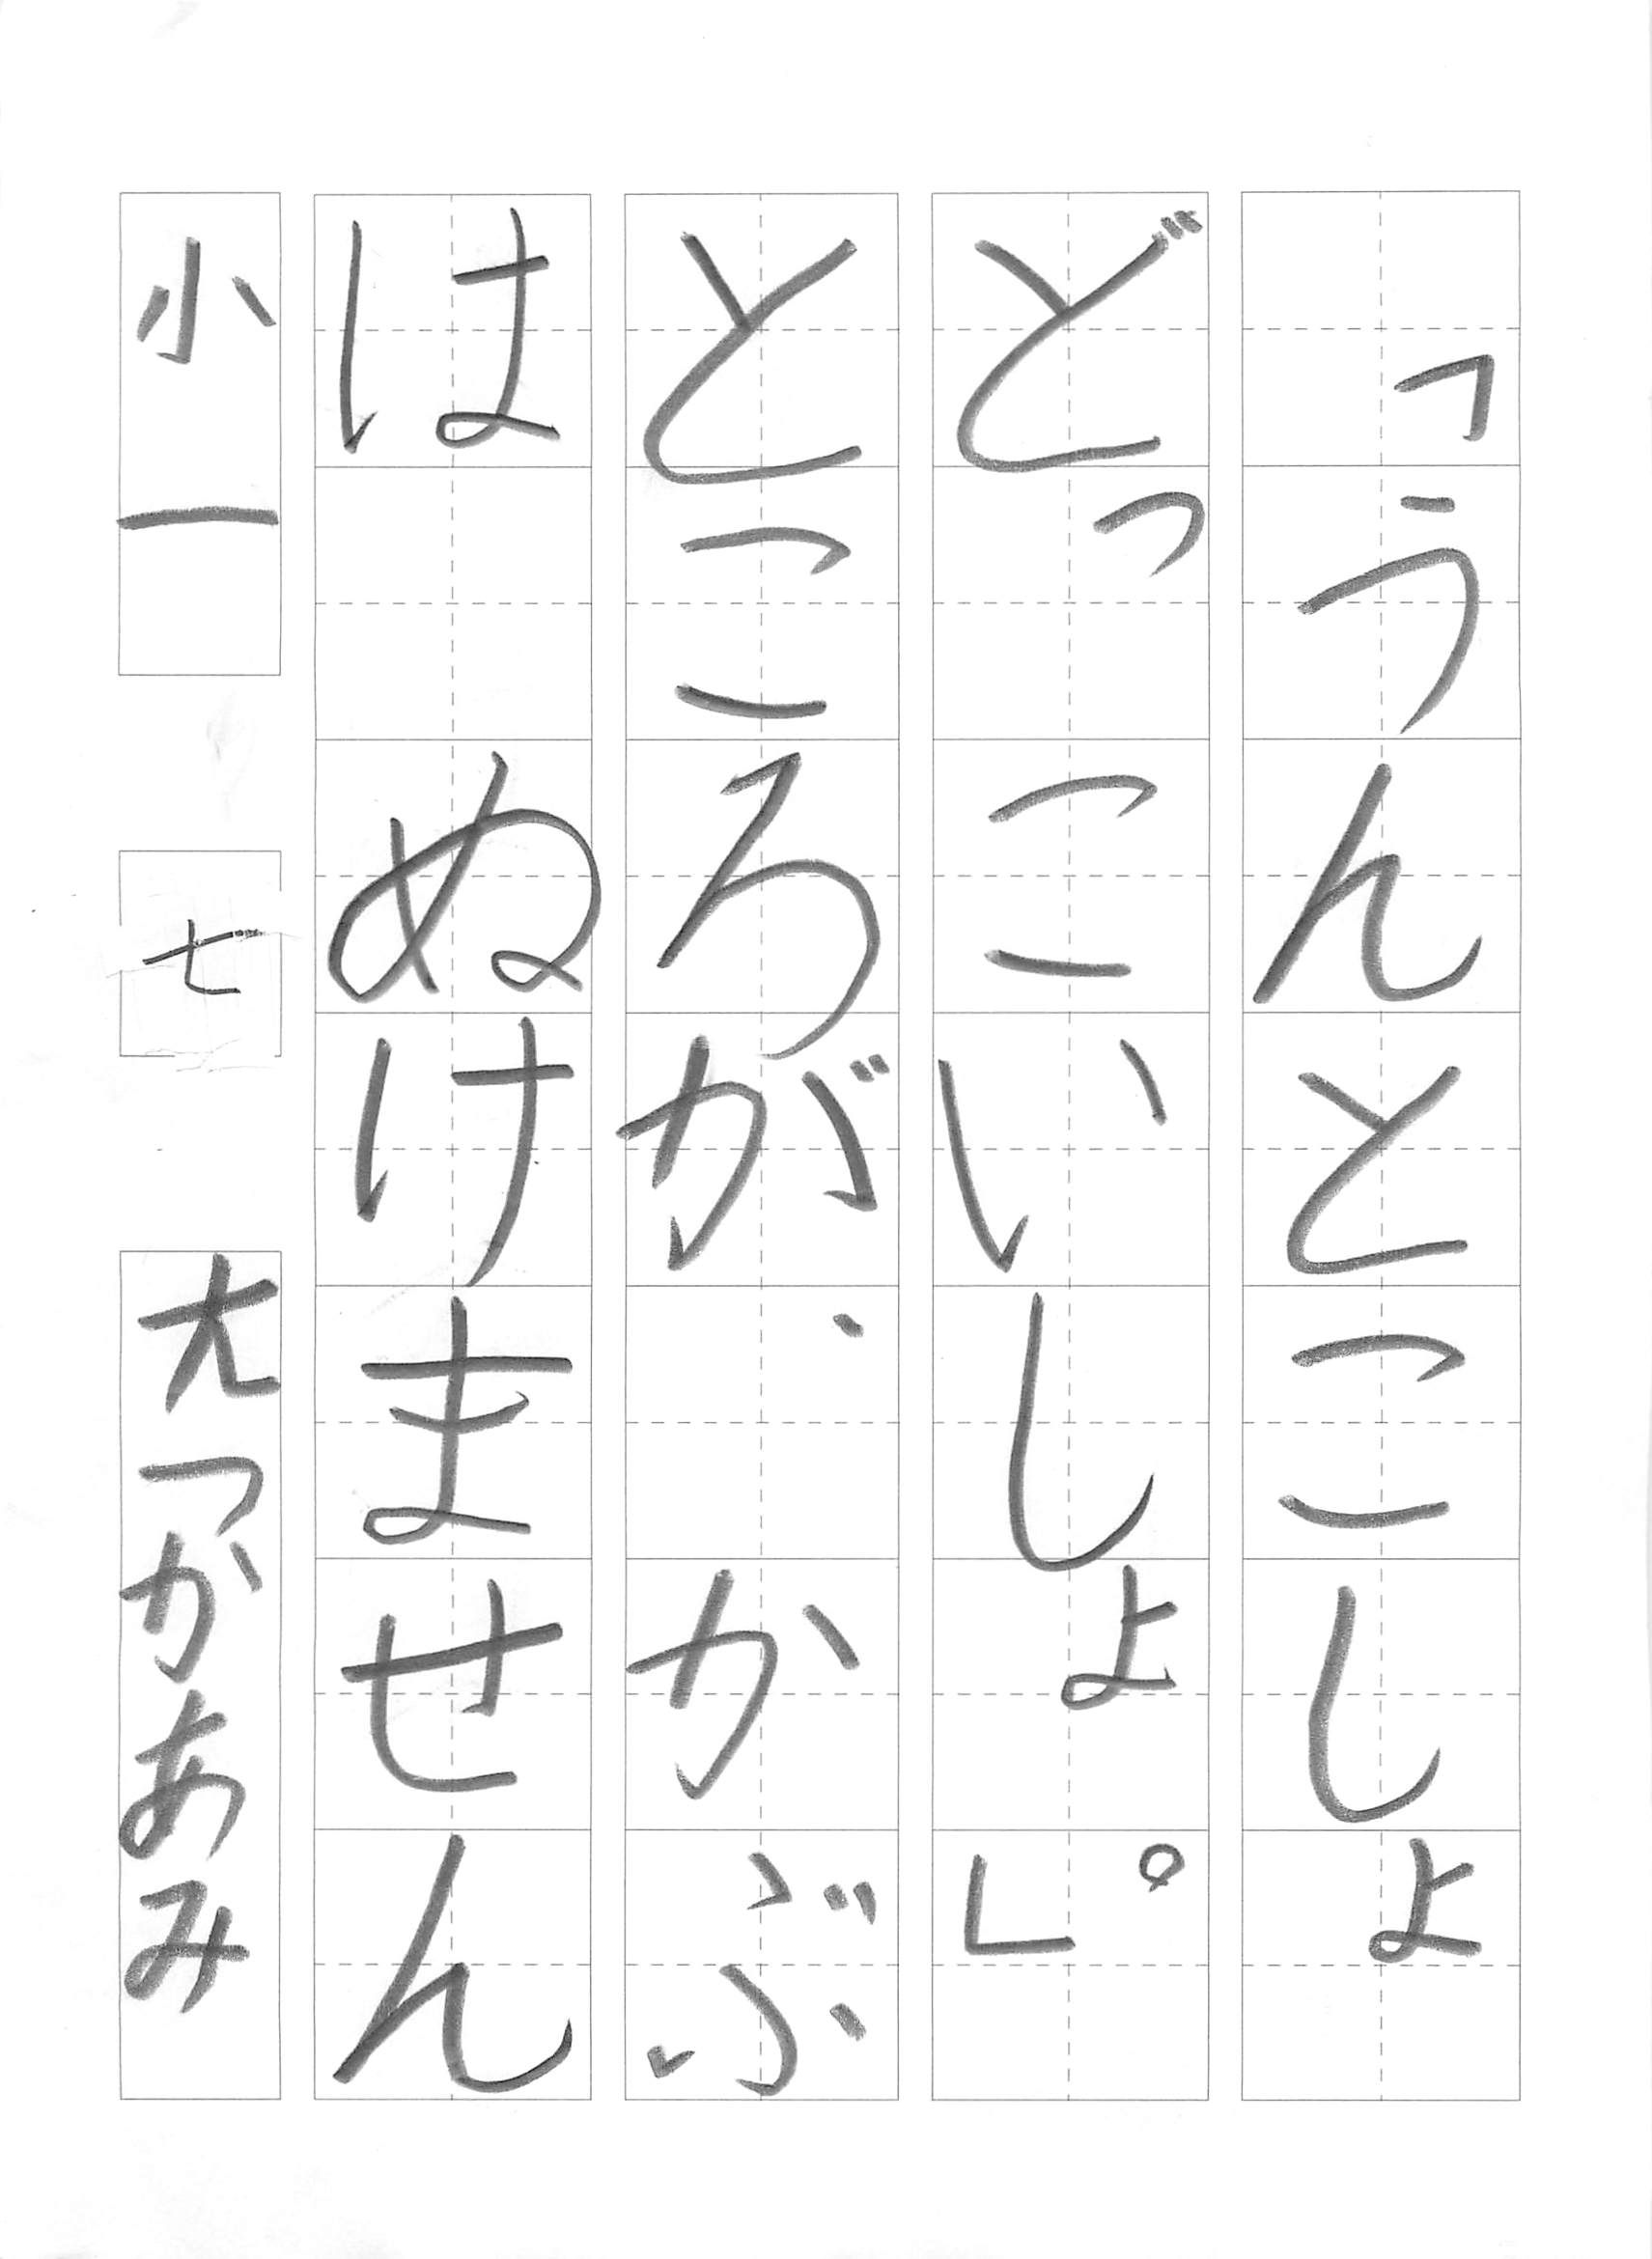 「うんとこしょ
どっこいしょ。」
ところが、かぶ
は ぬけません
小一 七 大つかあみ